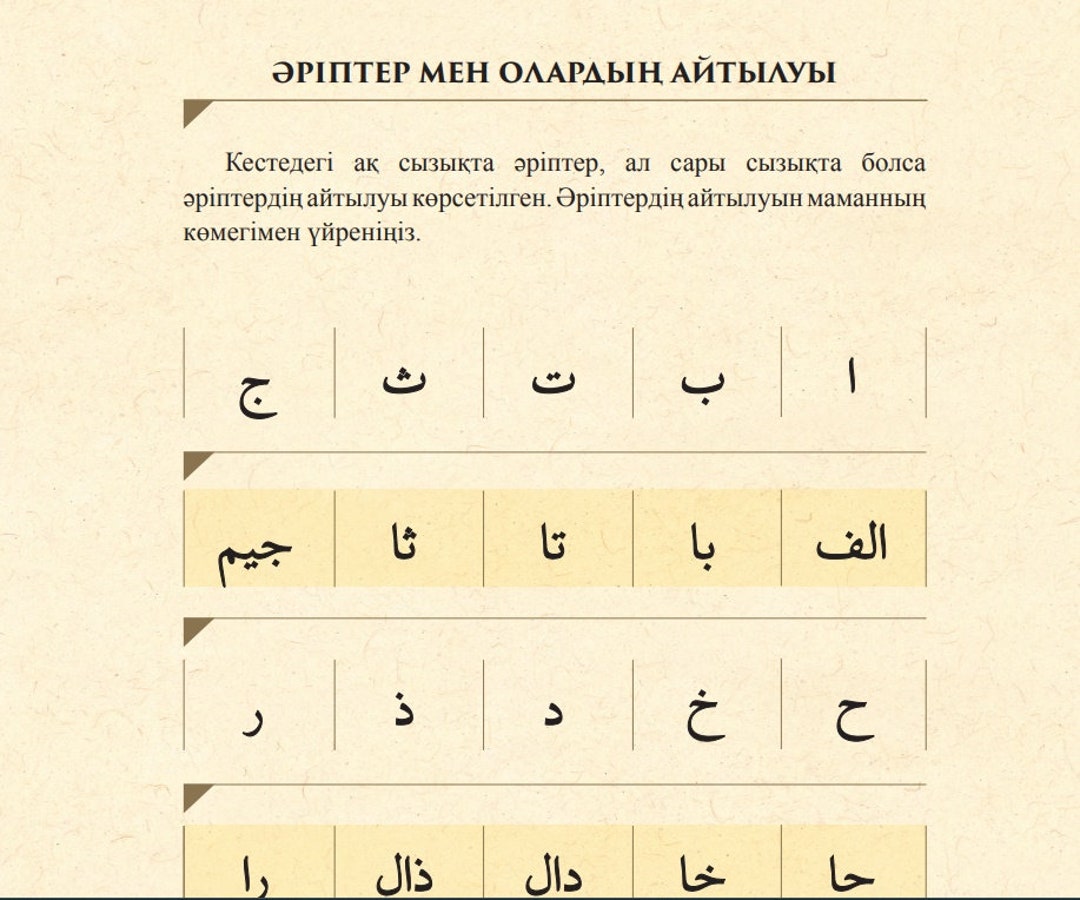 ӘРІПТЕР МЕН ОЛАРДЫҢ АЙТЫЛУЫ
Кестедегі ақ сызықта әріптер, ал сары сызықта болса
әріптердің айтылуы көрсетілген. Әріптердің айтылуын маманның
көмегімен үйреніңіз.
ا ب ت ث ج
الف با تا ثا جيم
ح خ د ذ ر
حا خا دال ذال را